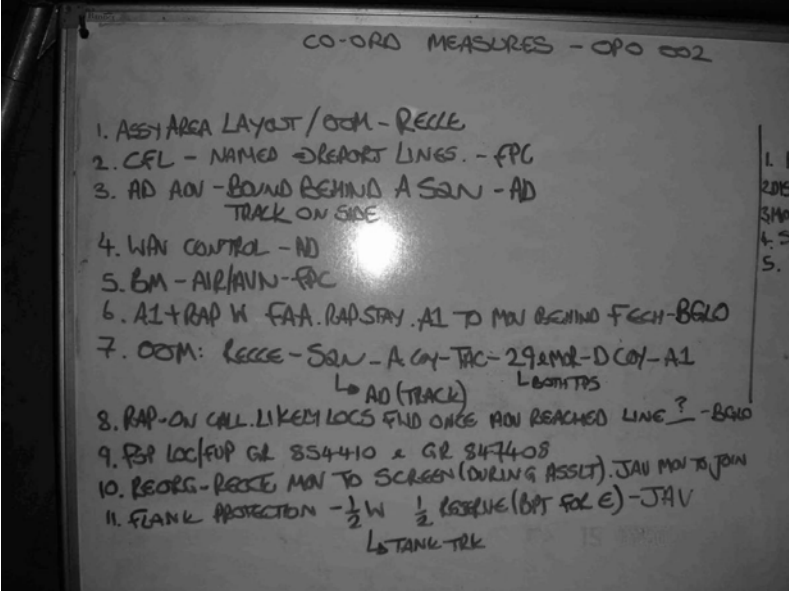 CO-ORD MEASURES - OPO 002
1. ASSY AREA LAYOUT / OOM - RECCE
2. CFL - NAMED → REPORT LINES. - FPC
3. AD ADV - BOUND BEHIND A SQN - AD
TRACK ON SIDE
4. WPN CONTROL - AD
5. BM - AIR/AVN - FPC
6. A1 + RAP W FAA. RAP STAY. A1 TO MOV BEHIND F ECH - BGLO
7. OOM: RECCE - SQN - A COY - TAC - 29 & MOR - D COY - A1
↳ AD (TRACK)
↳ BOTH TPS
8. RAP - ON CALL. LIKELY LOCS FND ONCE ADV REACHED LINE ? - BGLO
9. PSP LOC/FUP GR 854410 & GR 847408
10. REORG - RECCE MOV TO SCREEN (DURING ASSLT). JAV MOV TO JOIN
11. FLANK PROTECTION - 1/2 W 1/2 RESERVE (BPT FOR E) - JAV
↳ TANK TRK
1.
2.
3. MO
4. S
5.